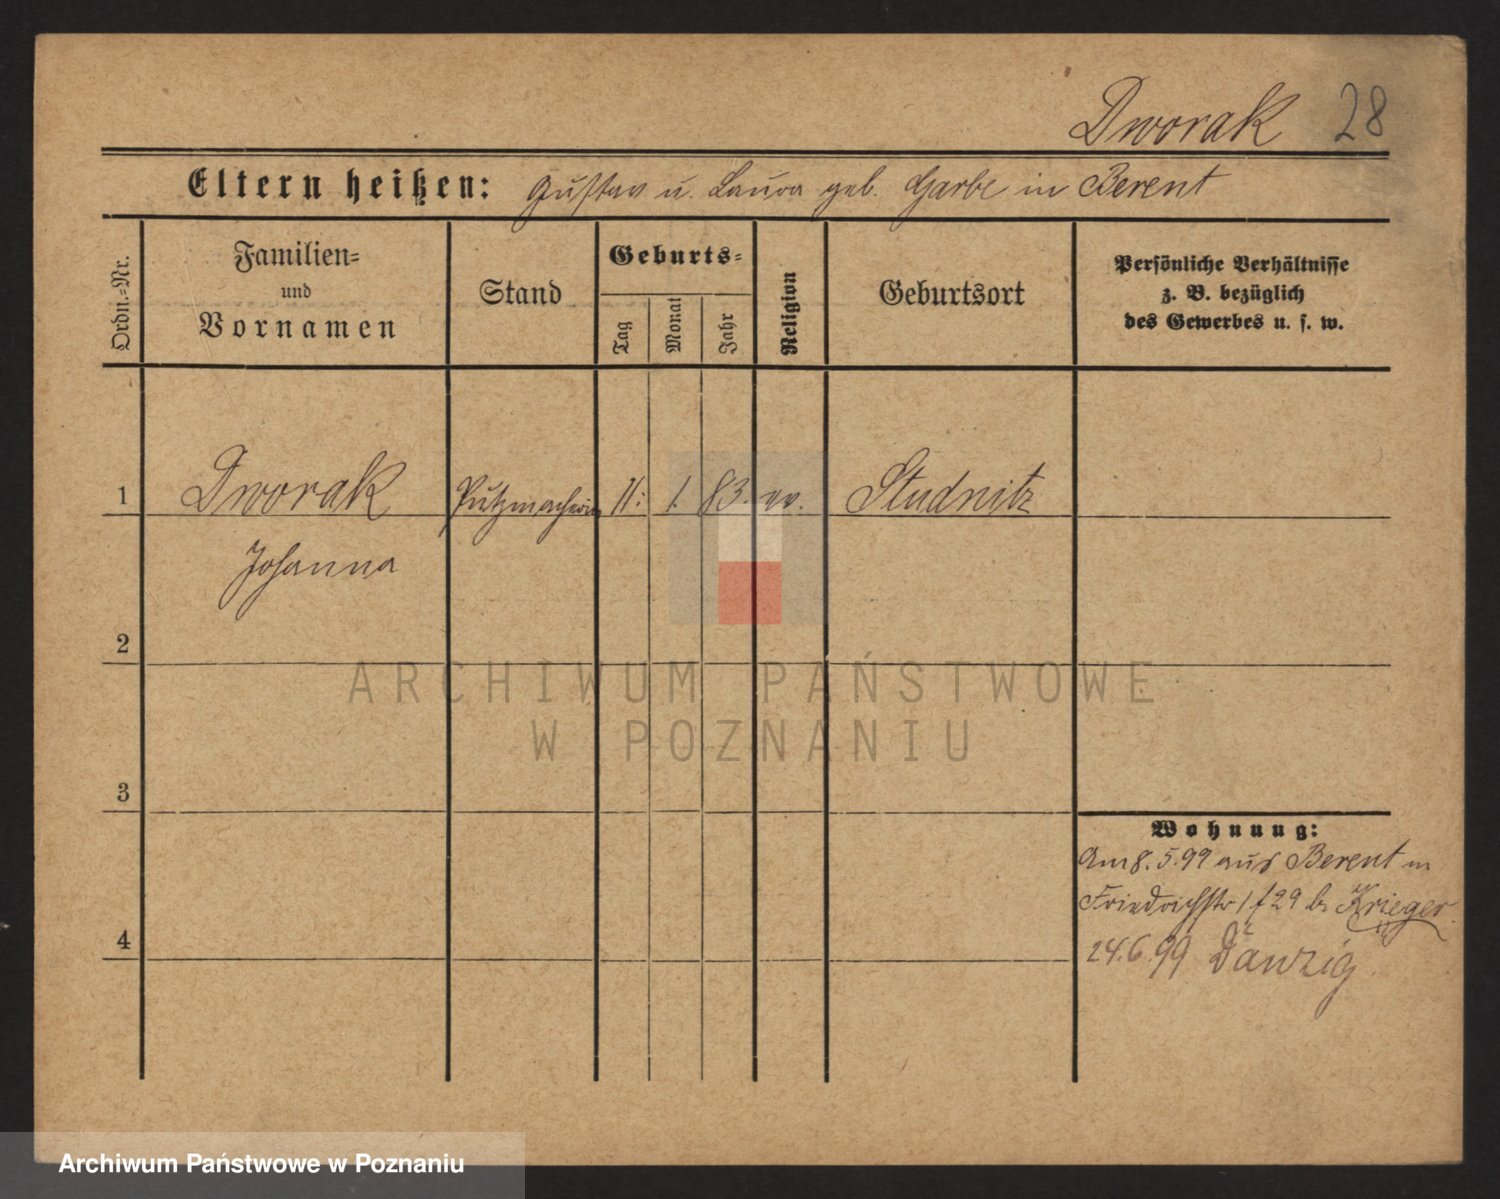 Dworak 28
Eltern heißen: Gustav u. Laura geb. Garbe in Berent
Ordn.-Nr.
Familien-
und
Vornamen
Stand
Geburts-
Tag
Monat
Jahr
Religion
Geburtsort
Persönliche Verhältnisse
z. B. bezüglich
des Gewerbes u. s. w.
1 Dworak Putzmacherin 11. 1. 83. ev. Studnitz
Johanna
2
3
4
Wohnung:
Am 8.5.99 aus Berent in
Friedrichstr 29 b. Krieger
24.6.99 Danzig
ARCHIWUM PAŃSTWOWE
W POZNANIU
Archiwum Państwowe w Poznaniu